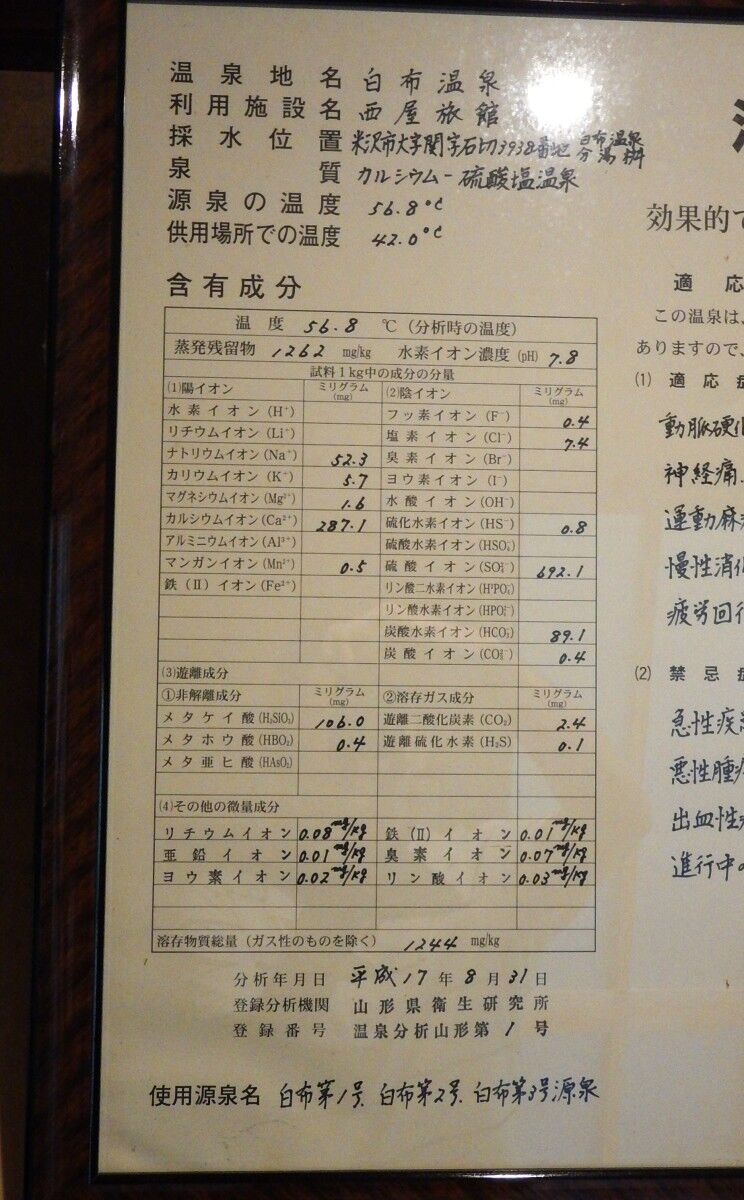 温泉地名 白布温泉
利用施設名 西屋旅館
採水位置 米沢市大字関字石切3938番地 白布温泉分湯桝
泉質 カルシウム-硫酸塩温泉
源泉の温度 56.8℃
供用場所での温度 42.0℃
含有成分
温度 56.8 ℃ (分析時の温度)
蒸発残留物 1262 mg/kg 水素イオン濃度 (pH) 7.8
試料1kg中の成分の分量
(1)陽イオン ミリグラム(mg) (2)陰イオン ミリグラム(mg)
水素イオン(H⁺) フッ素イオン(F⁻) 0.4
リチウムイオン(Li⁺) 塩素イオン(Cl⁻) 7.4
ナトリウムイオン(Na⁺) 52.3 臭素イオン(Br⁻)
カリウムイオン(K⁺) 5.7 ヨウ素イオン(I⁻)
マグネシウムイオン(Mg²⁺) 1.6 水酸イオン(OH⁻)
カルシウムイオン(Ca²⁺) 287.1 硫化水素イオン(HS⁻) 0.8
アルミニウムイオン(Al³⁺) 硫酸水素イオン(HSO₄⁻)
マンガンイオン(Mn²⁺) 0.5 硫酸イオン(SO₄²⁻) 692.1
鉄(II)イオン(Fe²⁺) リン酸二水素イオン(H²PO₄⁻)
リン酸水素イオン(HPO₄²⁻)
炭酸水素イオン(HCO₃⁻) 89.1
炭酸イオン(CO₃²⁻) 0.4
(3)遊離成分
①非解離成分 ミリグラム(mg) ②溶存ガス成分 ミリグラム(mg)
メタケイ酸(H₂SiO₃) 106.0 遊離二酸化炭素(CO₂) 2.4
メタホウ酸(HBO₂) 0.4 遊離硫化水素(H₂S) 0.1
メタ亜ヒ酸(HAsO₂)
(4)その他の微量成分
リチウムイオン 0.08mg/kg 鉄(II)イオン 0.01mg/kg
亜鉛イオン 0.01mg/kg 臭素イオン 0.07mg/kg
ヨウ素イオン 0.02mg/kg リン酸イオン 0.03mg/kg
溶存物質総量(ガス性のものを除く) 1244 mg/kg
分析年月日 平成17年8月31日
登録分析機関 山形県衛生研究所
登録番号 温泉分析山形第1号
使用源泉名 白布第1号、白布第2号、白布第3号源泉
効果的で
適応
この温泉は、
ありますので、
(1) 適応症
動脈硬化
神経痛、
運動麻
慢性消化
疲労回
(2) 禁忌症
急性疾
悪性腫
出血性
進行中の